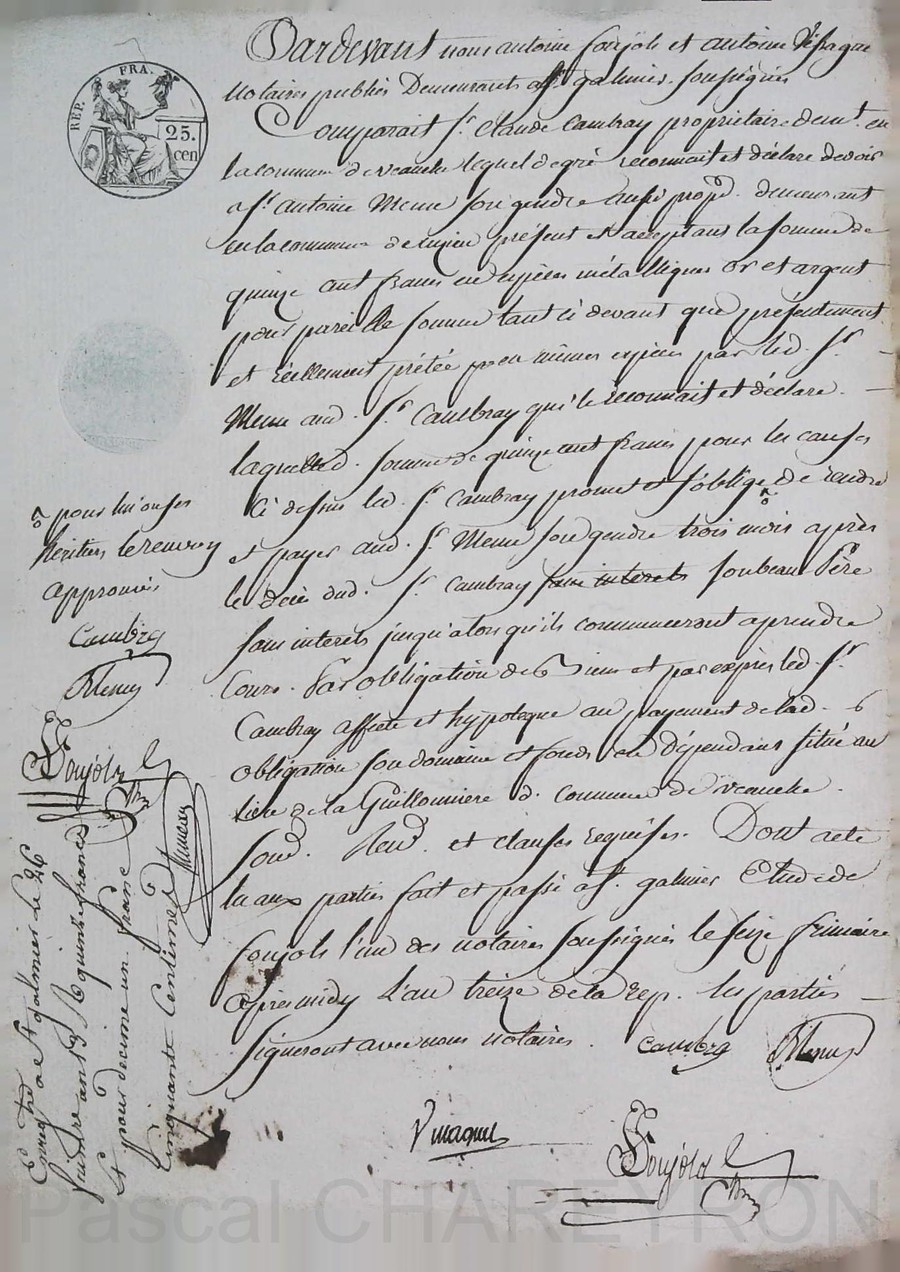 REP. FRA.
25.
cen
Pardevant nous antoine Soujols et antoine
Notaires publics Demeurants a St. galmier soussignés
Comparait Sr. Claude Cambray propriétaire demt. en
la commune de veauche lequel de gré reconnait et déclare devoir
a Sr. antoine son gendre aussi propre. demeurant
en la commune de present et acceptant la somme de
quinze cent francs en espèces métalliques or et argent
pour pareille somme tant ci devant que présentement
et réellement prétée en mêmes espèces par led. Sr.
aud. Sr. Cambray qui le reconnait et déclare.
laquelle d. somme de quinze cent francs pour les causes
ci dessus led. Sr. Cambray promet et s'oblige de rendre
et payer aud. Sr. son gendre trois mois après
le décè dud. Sr. Cambray sans interets son beau Père
sans interets jusqu'alors qu'ils commenceront a prendre
Cours. Par obligation de et par exprès led. Sr.
Cambray affecte et hypoteque au payement de lad.
obligation son domaine et fonds en dépendans situé au
lieu de la Guillonniere d. commune de veauche.
soud. Rend. et clauses requises. Dont acte
lu aux parties fait et passé a St. galmier Etude de
Soujols l'un des notaires soussignés le seize frimaire
après midy L'an treize de la rep. les parties
signeront avec nous notaires. Cambra
Soujols
pour lui ou ses
héritiers le renvoy
approuvés
Cambra
Soujols
Enregtré a St galmier le 26
frimaire an 13 R quinze francs
et pour decime un franc
cinquante Centimes
Pascal CHAREYRON